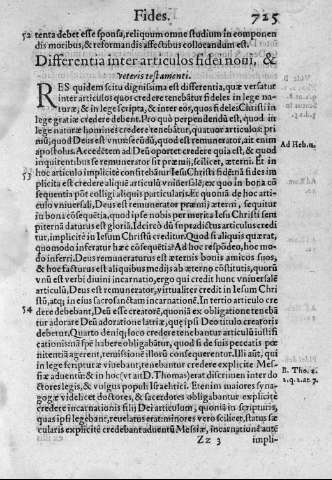 Fides. 725
52 tenta debet esse sponsa, reliquum omne studium in componen
dis moribus, & reformandis affectibus collocandum est.
Differentia inter articulos fidei noui, &
veteris testamenti.
RES quidem scitu dignissima est differentia, quæ versatur
inter articulos quos credere tenebātur fideles in lege na-
tura, & in lege scripta, & inter eos, quos fideles Christi in
lege gratiæ credere debent. Pro quo perpendendū est, quod in
lege naturæ homines credere tenebātur, quatuor articulos: pri
mus, quod Deus est vnus: secundus, quod est remunerator, ait enim
apostolus. Accedentem ad Deū oportet credere quia est, & quod
inquirentibus se remunerator fit præmij, scilicet, æterni. Et in
53 hoc articulo implicite consistebatur Iesu Christi fides: nā fides im
plicita est credere aliquē articulū vniuersalē, ex quo in bona cō
sequentia pōt colligi aliquis particularis: & quoniā de hoc arti-
culo vniuersali, Deus est remunerator præmij æterni, sequitur
in bona cōsequētia, quod ipse nobis per merita Iesu Christi sem
piternā daturus est gloriā. Ideirco dū in prædictus articulus credi
tur, implicitè in Iesum Christū creditur. Quod si aliquis quærat,
quomodo inferatur hæc cōsequētia? Ad hoc respōdeo, hoc mo-
do inferri. Deus remuneraturus est æternis bonis amicos suos,
& hoc facturus est aliquibus medijs ab æterno cōstitutis, quorū
vnū est verbi diuini incarnatio, ergo qui credit hunc vniuersalē
articulū, Deus est remunerator, virtualiter credit in Iesum Chri
stū, atq; in eius sacrosanctam incarnationē. In tertio articulo cre
54 dere debebant, Deū esse creatorē, quoniā ex obligatione tenebā
tur adorare Deū adoratione latriæ, quæ ipsi Deo titulo creatoris
debetur. Quarto deniq; loco credere tenebantur articulū iustifi
cationis: nā spē habere obligabātur, quod si de suis peccatis pœ
nitentiā agerent, remissionē illorū consequerentur. Illi aūt, qui
in lege scripturæ viuebant, tenebantur credere explicitè Mes-
siæ aduentū & in hoc (vt ait D. Thomas) erat discrimen inter do
ctores legis, & vulgus populi Israelitici. Etenim maiores synag-
ogæ videlicet doctores, & sacerdotes obligabantur explicitè
credere incarnationis filij Dei articulum, quoniā in scripturis,
quas ipsi legebant, reuelatus erat: minores vero scilicet, status sæ
cularis explicitè credebant aduentū Messiæ, incarnationē autē
Zz 3 impli-
Ad Heb. 11.
B. Tho. 2.
2. q. 2. ar. 7.